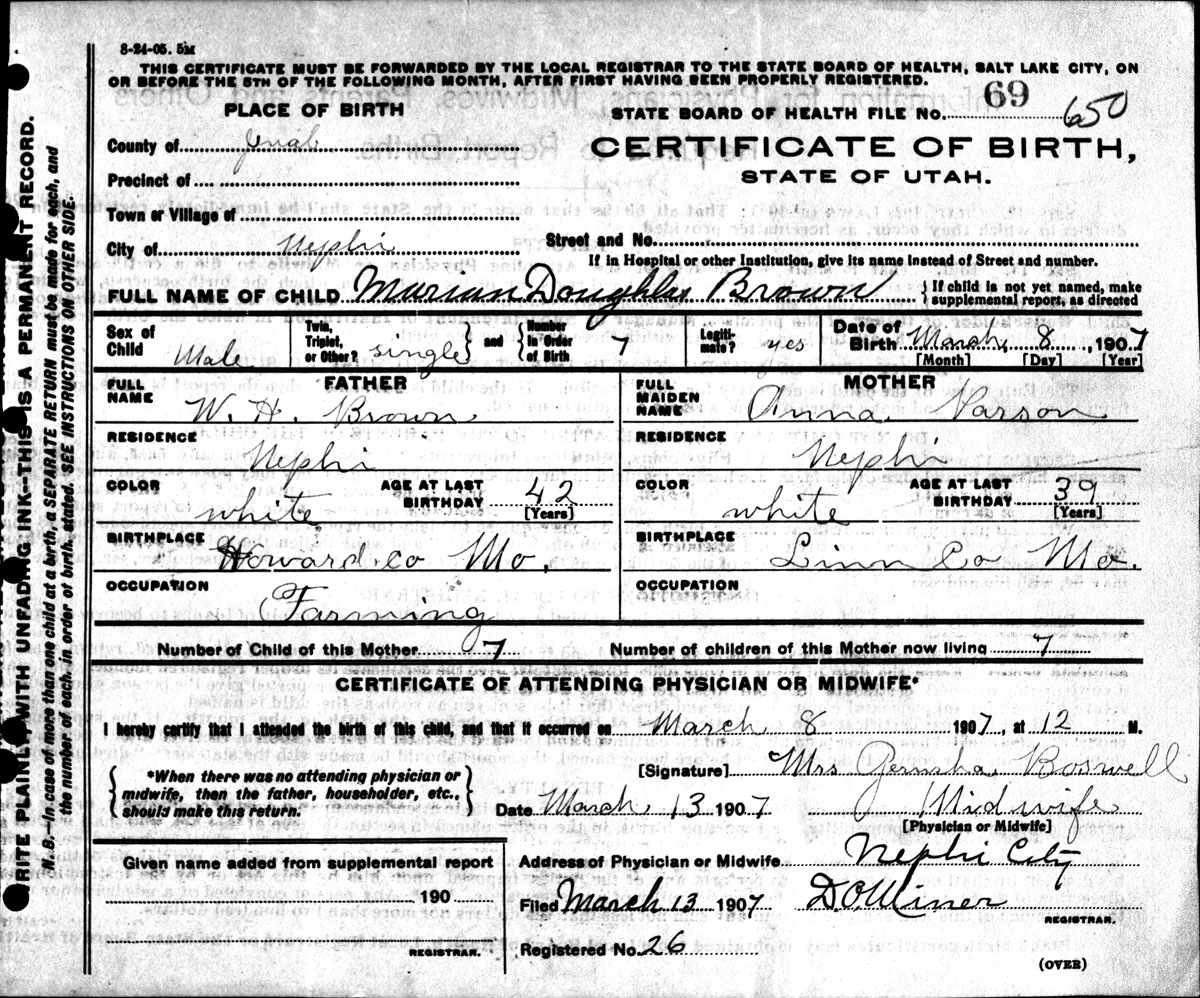 8-24-05. 5M
THIS CERTIFICATE MUST BE FORWARDED BY THE LOCAL REGISTRAR TO THE STATE BOARD OF HEALTH, SALT LAKE CITY, ON
OR BEFORE THE 5TH OF THE FOLLOWING MONTH, AFTER FIRST HAVING BEEN PROPERLY REGISTERED.
PLACE OF BIRTH
STATE BOARD OF HEALTH FILE NO. 69 650
County of Juab
CERTIFICATE OF BIRTH,
STATE OF UTAH.
Precinct of
Town or Village of
City of Nephi
Street and No.
If in Hospital or other Institution, give its name instead of Street and number.
FULL NAME OF CHILD Marian Doughlas Brown { If child is not yet named, make
supplemental report, as directed
Sex of Child Male
Twin, Triplet, or Other? single } and { Number in Order of Birth 7
Legiti- mate? yes
Date of Birth March 8, 1907
[Month] [Day] [Year]
FATHER
FULL NAME W. H. Brown
MOTHER
FULL MAIDEN NAME Anna Varson
RESIDENCE Nephi
RESIDENCE Nephi
COLOR white
AGE AT LAST BIRTHDAY 42 [Years]
COLOR white
AGE AT LAST BIRTHDAY 39 [Years]
BIRTHPLACE Howard co Mo.
BIRTHPLACE Linn Co Mo.
OCCUPATION Farming
OCCUPATION
Number of Child of this Mother 7
Number of children of this Mother now living 7
CERTIFICATE OF ATTENDING PHYSICIAN OR MIDWIFE*
I hereby certify that I attended the birth of this child, and that it occurred on March 8 1907, at 12 M.
{ *When there was no attending physician or
midwife, then the father, householder, etc.,
should make this return. }
[Signature] Mrs Jerusha Boswell
Date March 13 1907
Midwife
[Physician or Midwife]
Given name added from supplemental report
190
REGISTRAR.
Address of Physician or Midwife Nephi City
Filed March 13 1907 D O Miner
REGISTRAR.
Registered No. 26
(OVER)
RITE PLAINLY, WITH UNFADING INK--THIS IS A PERMANENT RECORD.
N.B.--In case of more than one child at a birth, a SEPARATE RETURN must be made for each, and
the number of each, in order of birth, stated. SEE INSTRUCTIONS ON OTHER SIDE.